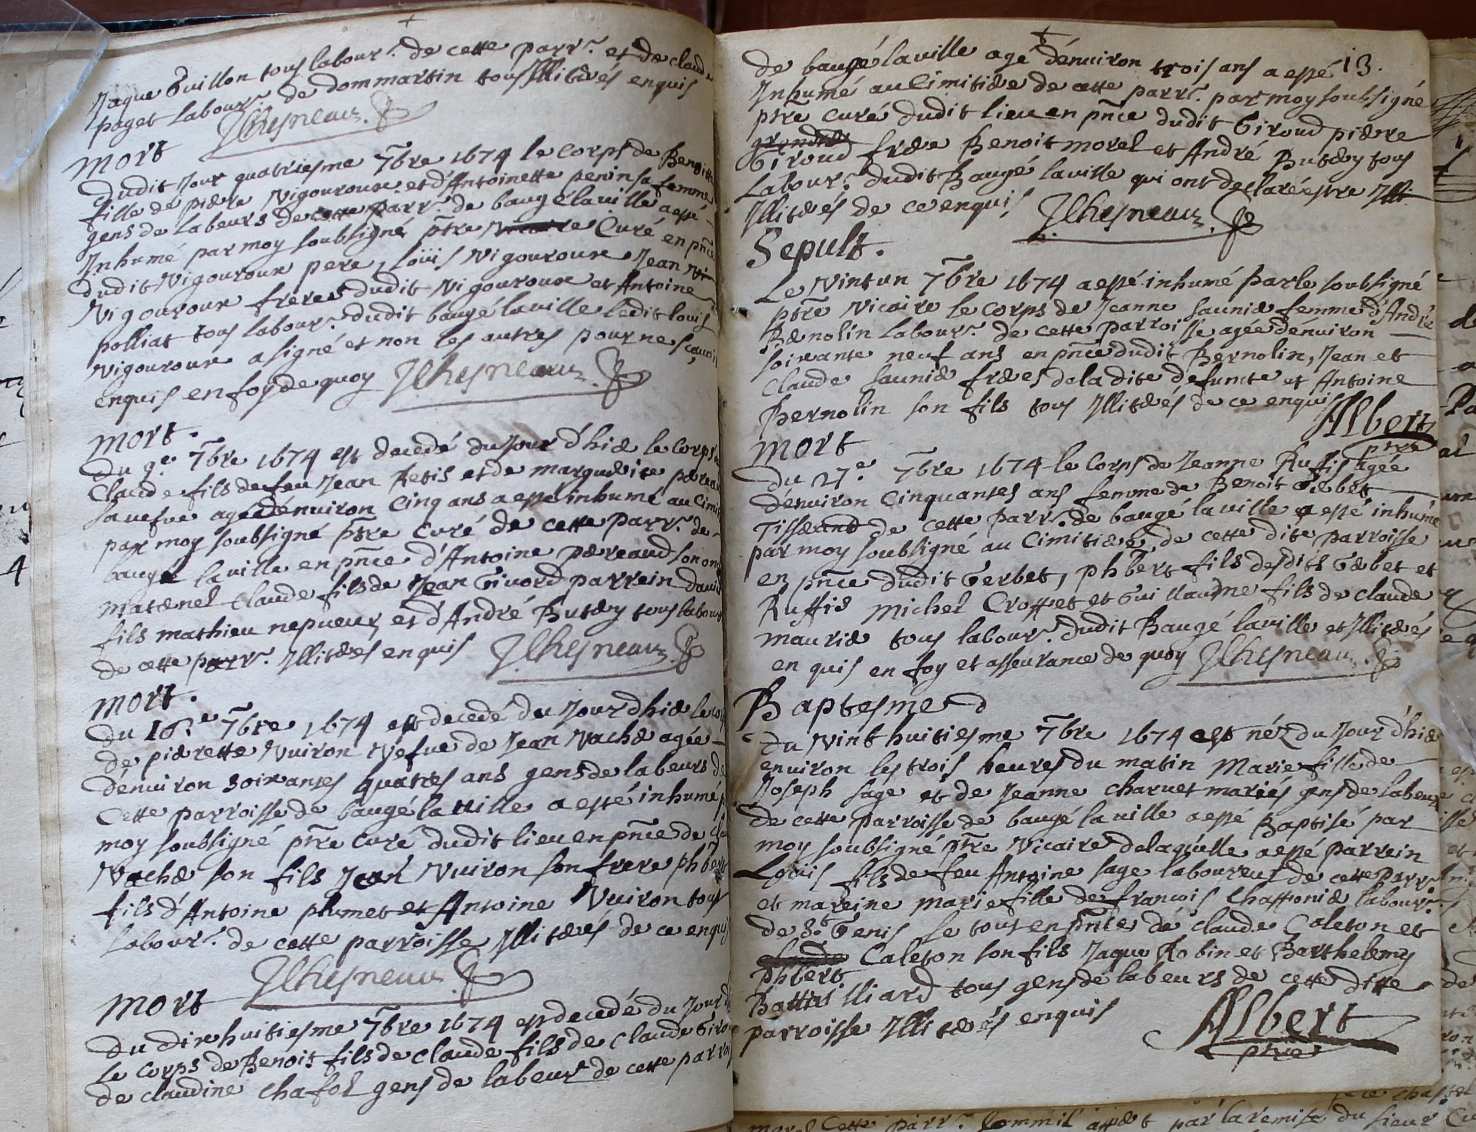 Jaque Guillon tous labour.rs de cette parr.e et de claude
paget labour.r de dommartin tous Illiterés enquis
JChesneau
mort
Dudit Jour quatriesme 7bre 1674 le corps de Benoitte
fille de piere Vigouroux et d'Antoinette penin sa femme
gens de labeurs de cette parr.e de baugé la ville a esté
Inhumé par moy soubsigné ptre Curé en pnce
dudit Vigouroux pere, Louis Vigouroux Jean
Vigouroux freres dudit Vigouroux et Antoine
polliat tous labour.rs dudit baugé la ville ledit louis
Vigouroux a signé et non les autres pour ne sçavoir
enquis en foy de quoy JChesneau
mort.
Du 9.e 7bre 1674 est decedé du Jour d'hier le corps de
Claude fils de feu Jean Retis et de marguerite pereaud
sa vefue agé denuiron Cinq ans a esté inhumé au Cimit
par moy soubsigné ptre curé de cette parr.e de
baugé la ville en pnce d'Antoine pereaud son oncle
maternel Claude fils de Jean Giuord parrein dauid
fils mathieu nepueux et d'André Butery tous labour
de cette parr.e Illiterés enquis JChesneau
mort.
Du 16.e 7bre 1674 est decedé du Jour d'hier le corps
de pierrette Vuiron Vefue de Jean Vacher agée
denuiron soixantes quatres ans gens de labeurs de
Cette parroisse de baugé la ville a esté inhumé p
moy soubsigné ptre Curé dudit lieu en pnce de
Vacher son fils Jean Vuiron son frere phbert
fils d'Antoine plumet et Antoine Vuiron tous
labour.rs de cette parroisse Illiterés de ce enquis
JChesneau
mort
Du dix huitiesme 7bre 1674 est decedé du Jour d
Le corps de Benoist fils de Claude fils de Claude Giro
de claudine Chafol gens de labeur de cette parroi
13.
de baugé la ville agé denuiron trois ans a esté
Inhumé au Cimitiere de cette parr.e par moy soubsigné
ptre curé dudit lieu en pnce dudit Giroud piere
Giroud frere Benoit morel et André Butery tous
Labour.rs dudit Baugé la ville qui ont declaré estre Illi
Illiterés de ce enquis JChesneau
Sepult.
Le Vint un 7bre 1674 a esté inhumé par le soubsigné
ptre Vicaire le corps de Jeanne Saunier femme d'André
Bernolin Labour.r de cette parroisse agée denuiron
soixante neuf ans en pnce dudit Bernolin, Jean et
Claude Saunier freres de la dite defunte et Antoine
Bernolin son fils tous Illiterés de ce enquis
Albert
ptre
mort
Du 27.e 7bre 1674 le Corps de Jeanne Ruffis agée
denuiron Cinquantes ans femme de Benoit Gerbet
Tisserand de cette parr.e de baugé la ville a esté inhumé
par moy soubsigné au Cimitiere de cette dite parroisse
en pnce dudit Gerbet, phbert fils desdits Gerbet et
Ruffis Michel Crottet et Guillaume fils de Claude
maurier tous labour.rs dudit Baugé la ville et Illiterés
en quis en foy et asseurance de quoy JChesneau
Baptesme
Du Vint huitiesme 7bre 1674 est néz du Jour d'hier
enuiron les trois heures du matin Marie fille de
Joseph Sage et de Jeanne charuet mariés gens de labeur
de cette parroisse de baugé la ville a esté Baptisé par
moy soubsigné ptre Vicaire de laquelle a esté parrein
Louis fils de feu Antoine Sage laboureur de cette parr.e
et mareine Marie fille de francois Chaffonier labour.r
de St Genis Le tout en pnces de claude Caleton et
phbert Caleton son fils Jaque Robin et Barthelemy
Batailliard tous gens de labeurs de cette ditte
parroisse Illiterés enquis Albert
ptre